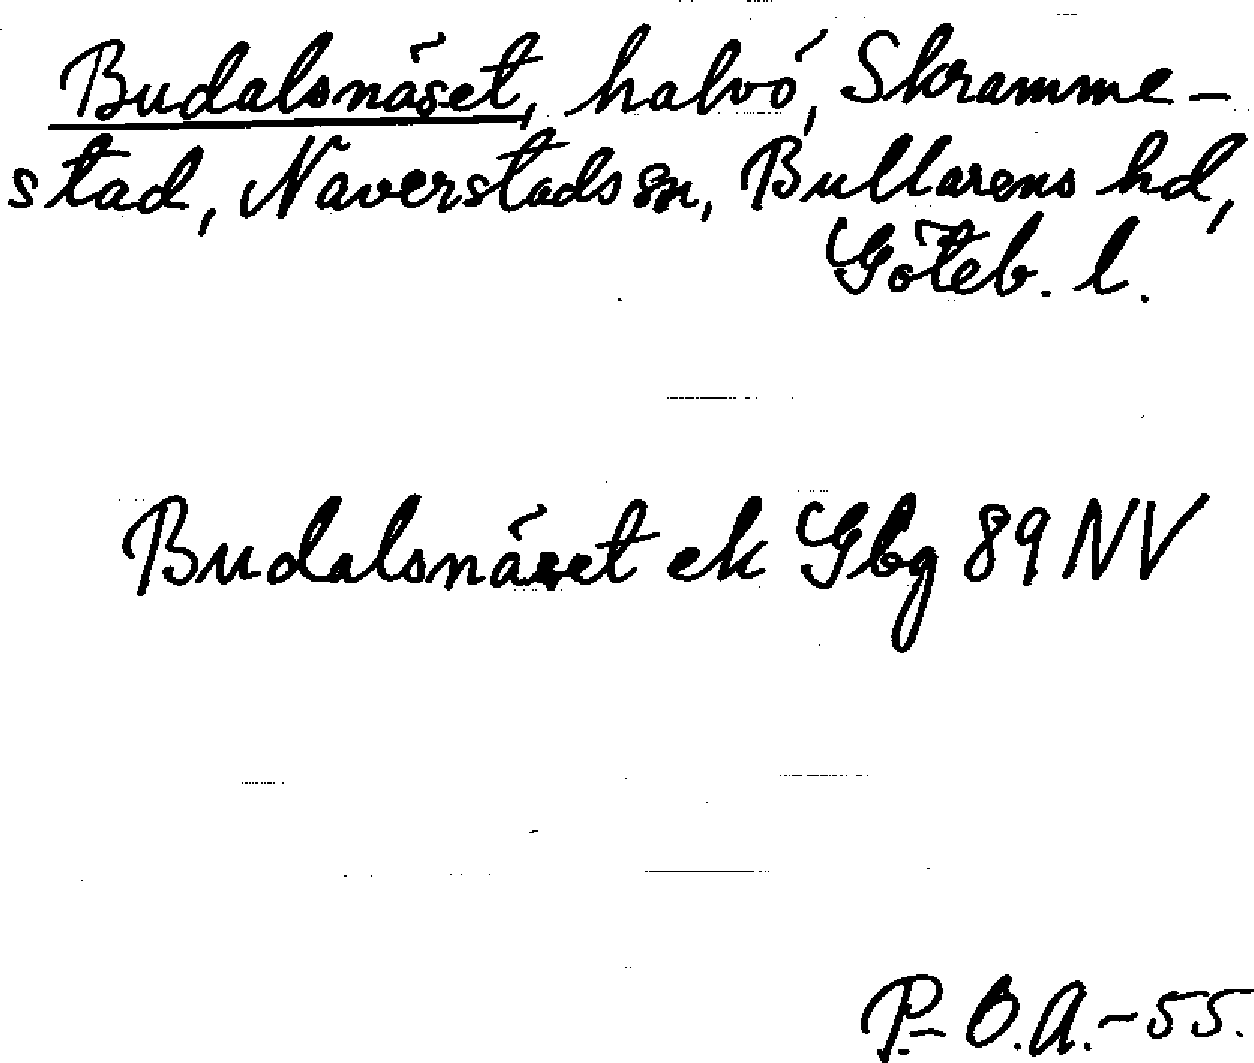 Budalsnäset, halvö, Skramme-
stad, Naverstads sn, Bullarens hd,
Göteb. l.
Budalsnäset ek Gbg 89 NV
P.-O.A.-55.